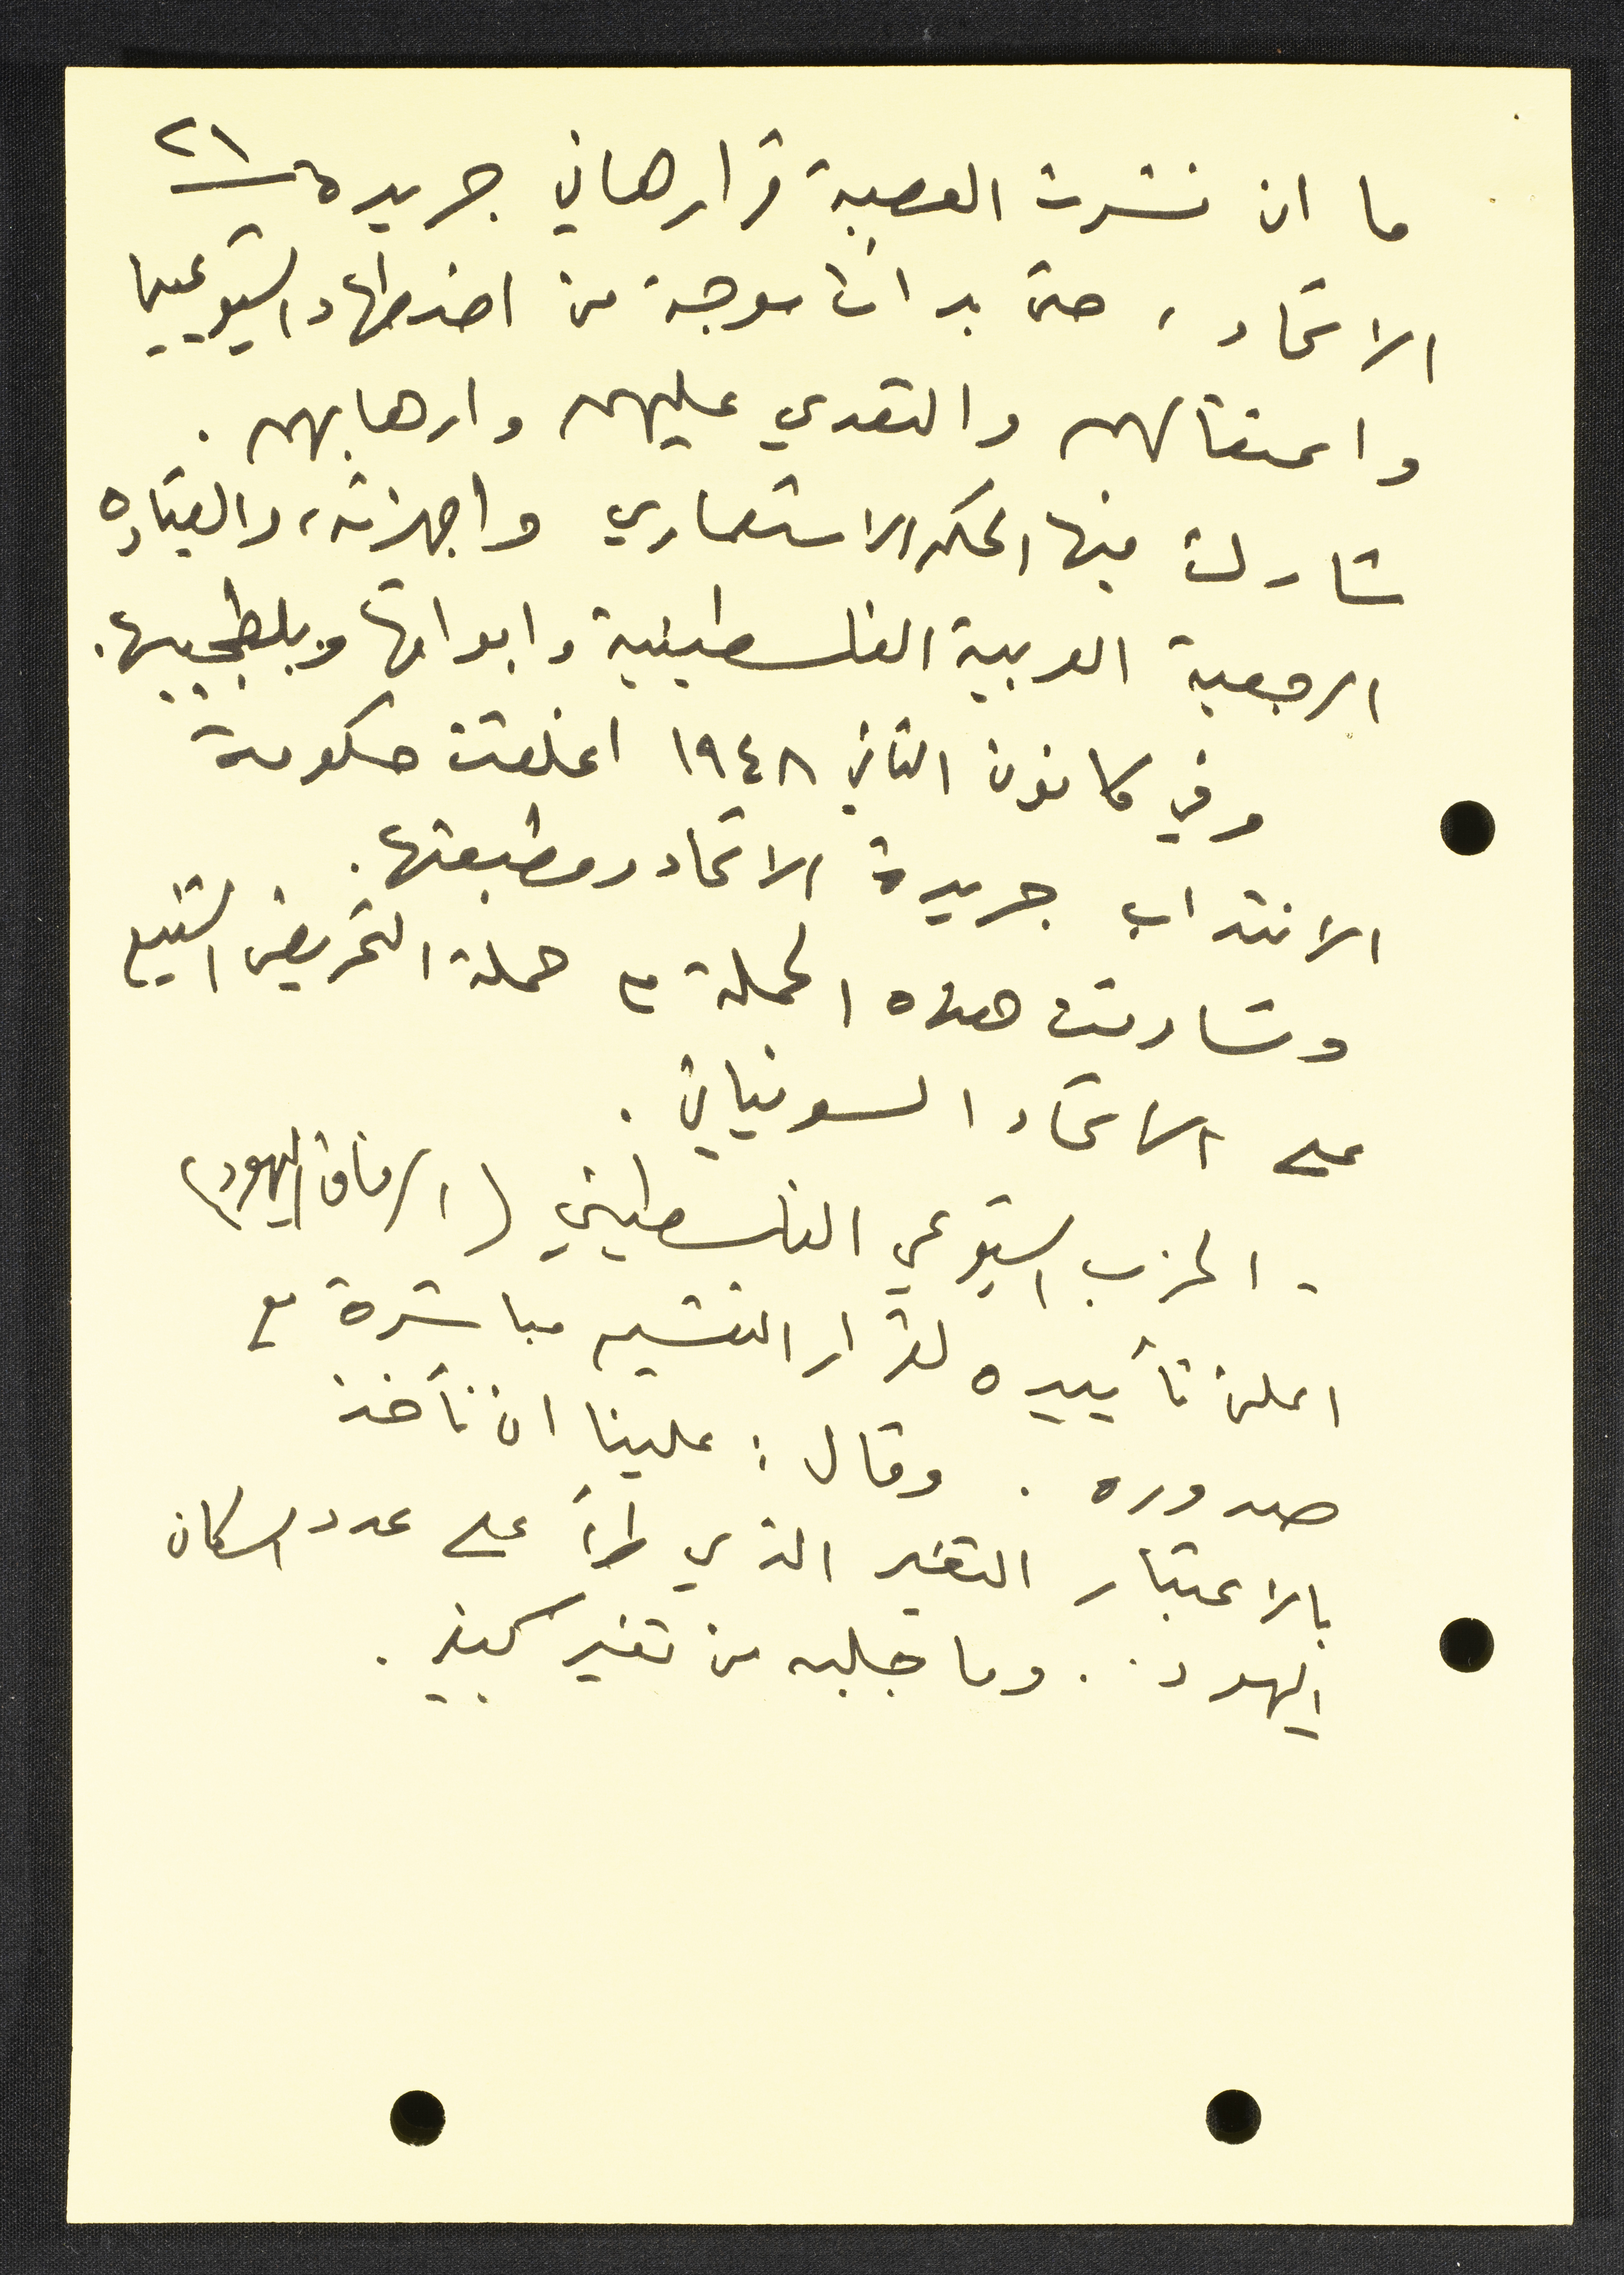 ٢١
ما ان نشرت العصبة قرارها في جريدة
الاتحاد، حتى بدات موجة من اضطهاد الشيوعيين
واعتقالهم والتعدي عليهم وارهابهم.
شارك فيها الحكم الاستعماري واجهزته، والقيادة
الرجعية العربية الفلسطينية وابواقها وبلطجييها.
وفي كانون الثاني ١٩٤٨ اغلقت حكومة
الانتداب جريدة الاتحاد ومطبعتها.
وتشاركت هذه الحملة مع حملة التحريض الشنيع
على الاتحاد السوفياتي.
- الحزب الشيوعي الفلسطيني (الرفاق اليهود)
اعلن تأييده لقرار التقسيم مباشرة مع
صدوره. وقال: علينا ان نأخذ
بالاعتبار التغير الذي طرأ على عدد السكان
اليهود.. وما جلبه من تغير كبير.